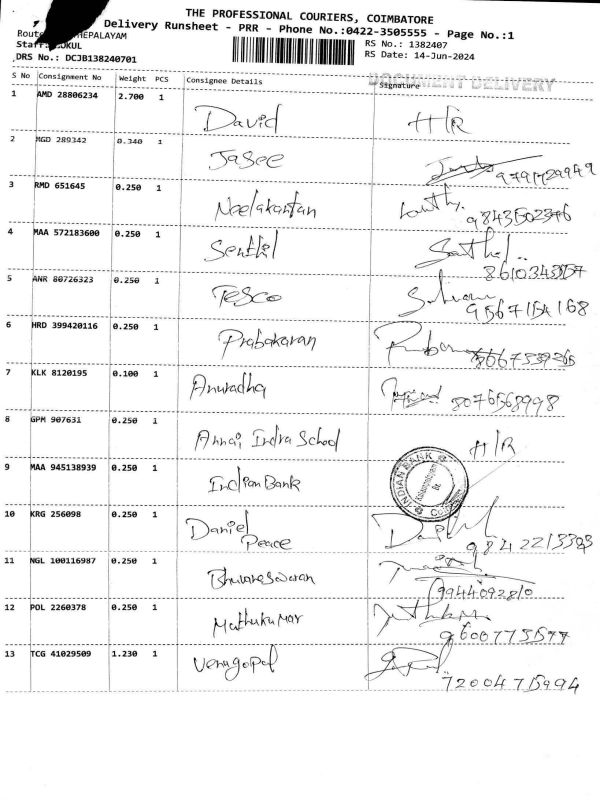 THE PROFESSIONAL COURIERS, COIMBATORE
Delivery Runsheet - PRR - Phone No.:0422-3505555 - Page No.:1
HEPALAYAM
RS No.: 1382407
DRS No.: DCJB138240701
RS Date: 14-Jun-2024
DOCUMENT DELIVERY
S No Consignment No Weight PCS Consignee Details Signature
1 AMD 28806234 2.700 1 David H/R
2 MGD 289342 0.340 1 Jasee
9791729949
3 RMD 651645 0.250 1 Neelakantan
9843502376
4 MAA 572183600 0.250 1 Senthil
5 ANR 80726323 0.250 1 Tesco
6 HRD 399420116 0.250 1 Prabakaran
7 KLK 8120195 0.100 1 Anuradha 8076568998
8 GPM 907631 0.250 1 Annai Indra School H/R
9 MAA 945138939 0.250 1 Indian Bank
INDIAN BANK
10 KRG 256098 0.250 1 Daniel
Peace
9842213303
11 NGL 100116987 0.250 1 Bhuvaneswaran
9944092810
12 POL 2260378 0.250 1 Muthukumar
13 TCG 41029509 1.230 1 Venugopal